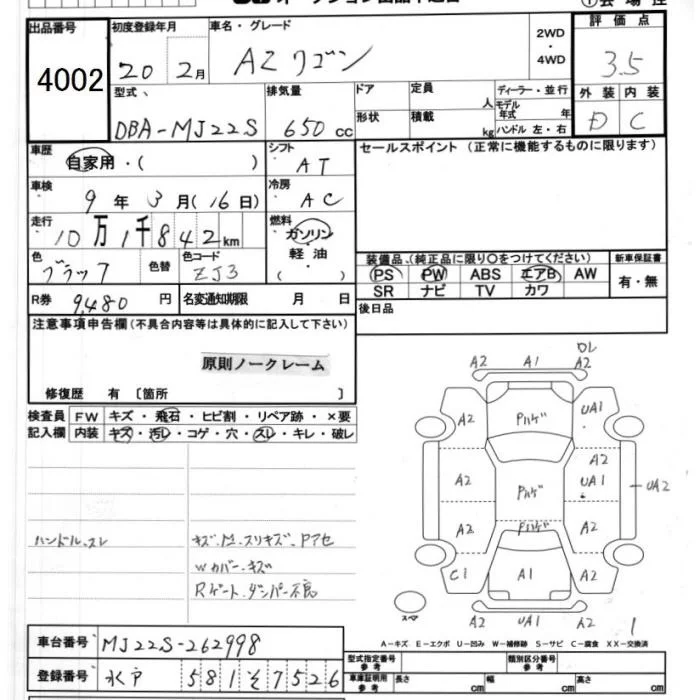 出品番号 4002
初度登録年月 20 2月
車名・グレード AZワゴン
2WD・4WD
評価点 3.5
型式 DBA-MJ22S
排気量 650 cc
ドア
定員 人
形状
積載 kg
ディーラー・並行
モデル年式 年
ハンドル 左・右
外装 内装
D C
車歴 自家用・( )
シフト AT
セールスポイント (正常に機能するものに限ります)
車検 9年 3月(16日)
冷房 AC
走行 10万1千842km
燃料 ガソリン
軽油
( )
色 ブラック 色替
色コード ZJ3
装備品 (純正品に限り○をつけてください)
新車保証書
PS PW ABS エアB AW
SR ナビ TV カワ
有・無
R券 9,480 円
名変通知期限 月 日
後日品
注意事項申告欄 (不具合内容等は具体的に記入して下さい)
原則ノークレーム
修復歴 有 〔箇所 〕
検査員記入欄
FW キズ・飛石・ヒビ割・リペア跡・×要
内装 キズ・汚レ・コゲ・穴・スレ・キレ・破レ
ハンドル.スレ
キズ.凹.スリキズ.Pアセ
Wカバー.キズ
Rゲート.ダンパー不良
A2 A1 A2
A2 Pハゲ UA1
A2
A2 Pハゲ UA1 UA2
A2 Pハゲ A2
C1 A1 A2
スペア
A2 UA1 A2
1
A-キズ E-エクボ U-凹み W-補修跡 S-サビ C-腐食 XX-交換済
車台番号 MJ22S-262998
登録番号 水戸 581そ7526
型式指定番号 参考
類別区分番号 参考
車庫証明用 参考
長さ cm
幅 cm
高さ cm